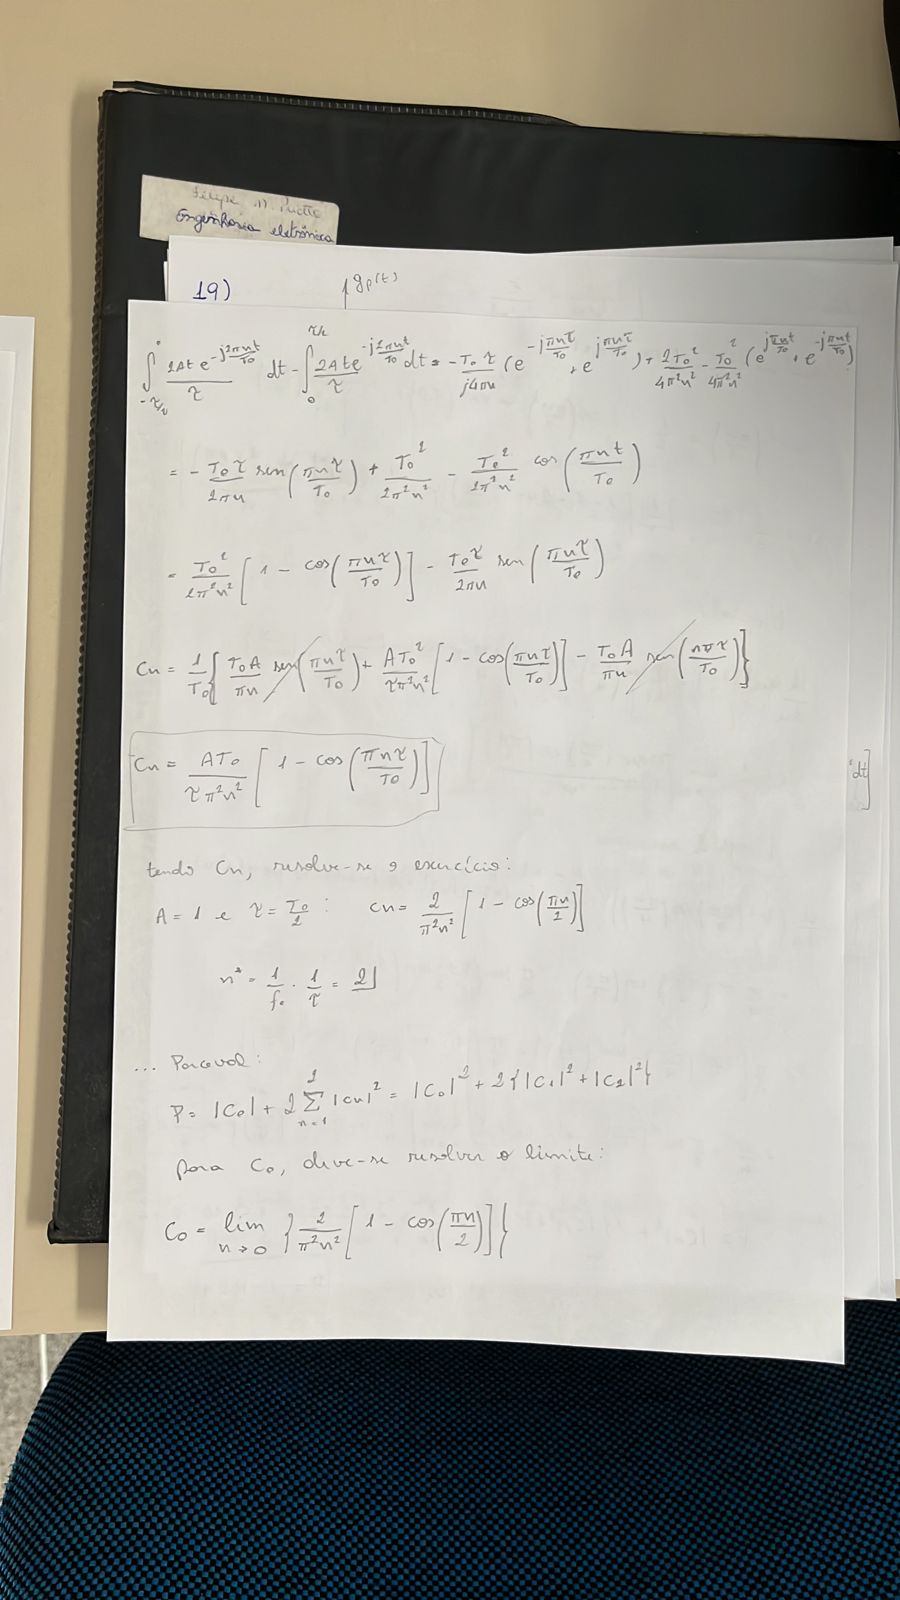 Engenharia eletrônica
19)
gp(t)
∫_{-τ/2}^{0} 2At e^{-j2πnt/T0}/τ dt - ∫_{0}^{τ/2} 2At e^{-j2πnt/T0}/τ dt = -T0 τ/j4πn (e^{-jπnτ/T0} + e^{jπnτ/T0}) + 2T0²/4π²n² - T0²/4π²n² (e^{jπnt/T0} + e^{-jπnt/T0})
= - T0τ/2πn sen(πnτ/T0) + T0²/2π²n² - T0²/2π²n² cos(πnt/T0)
= T0²/2π²n² [1 - cos(πnτ/T0)] - T0τ/2πn sen(πnτ/T0)
Cn = 1/T0 { T0A/πn sen(πnτ/T0) + AT0²/τπ²n² [1 - cos(πnτ/T0)] - T0A/πn sen(nπτ/T0) }
Cn = AT0/τπ²n² [1 - cos(πnτ/T0)]
dt]
tendo Cn, resolve-se o exercício:
A = 1 e τ = T0/2 : cn = 2/π²n² [1 - cos(πn/2)]
n* = 1/f0 · 1/τ = 2
... Parseval:
P = |C0| + 2 Σ_{n=1}^{2} |cn|² = |C0|² + 2{|C1|² + |C2|²}
para C0, deve-se resolver o limite:
C0 = lim_{n→0} {2/π²n² [1 - cos(πn/2)]}